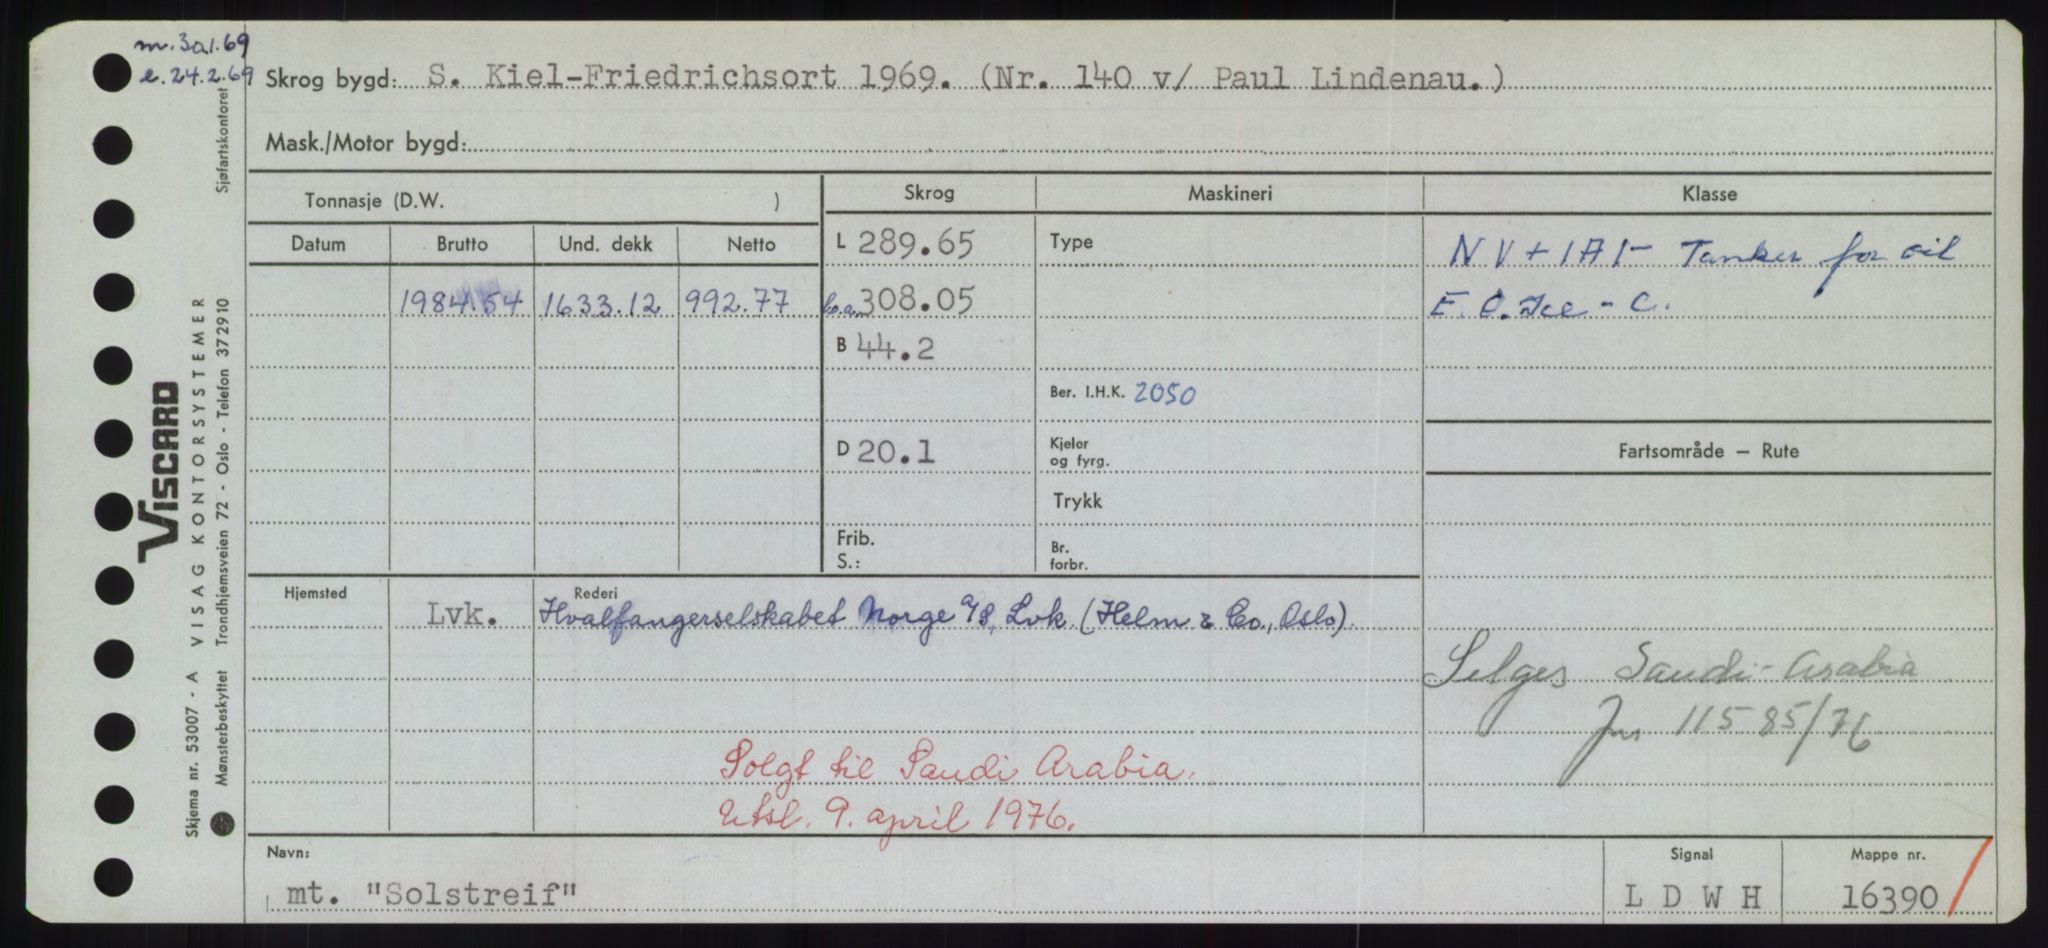 m. 30.1.69
e. 24.2.69
Skrog bygd: S. Kiel-Friedrichsort 1969. (Nr. 140 v/ Paul Lindenau.)
Mask./Motor bygd:
Tonnasje (D.W. ) Skrog Maskineri Klasse
Datum Brutto Und. dekk Netto L 289.65 Type NV+1A1- Tanker for oil
1984.54 1633.12 992.77 l.o.a. 308.05 E.O. Ice-C.
B 44.2
Ber. I.H.K. 2050
D 20.1 Kjeler og fyrg. Fartsområde — Rute
Trykk
Frib. S.: Br. forbr.
Hjemsted Rederi
Lvk. Hvalfangerselskabet Norge A/S, Lvk. (Helm & Co., Oslo).
Selges Saudi-Arabia
Jnr 11585/76
Solgt til Saudi Arabia.
Utsl. 9. april 1976.
Navn: Signal Mappe nr.
mt. "Solstreif" LDWH 16390
Skjema nr. 53007 - A VISAG KONTORSYSTEMER
Mønsterbeskyttet Trondhjemsveien 72 - Oslo - Telefon 372910 Sjøfartskontoret
VISCARD